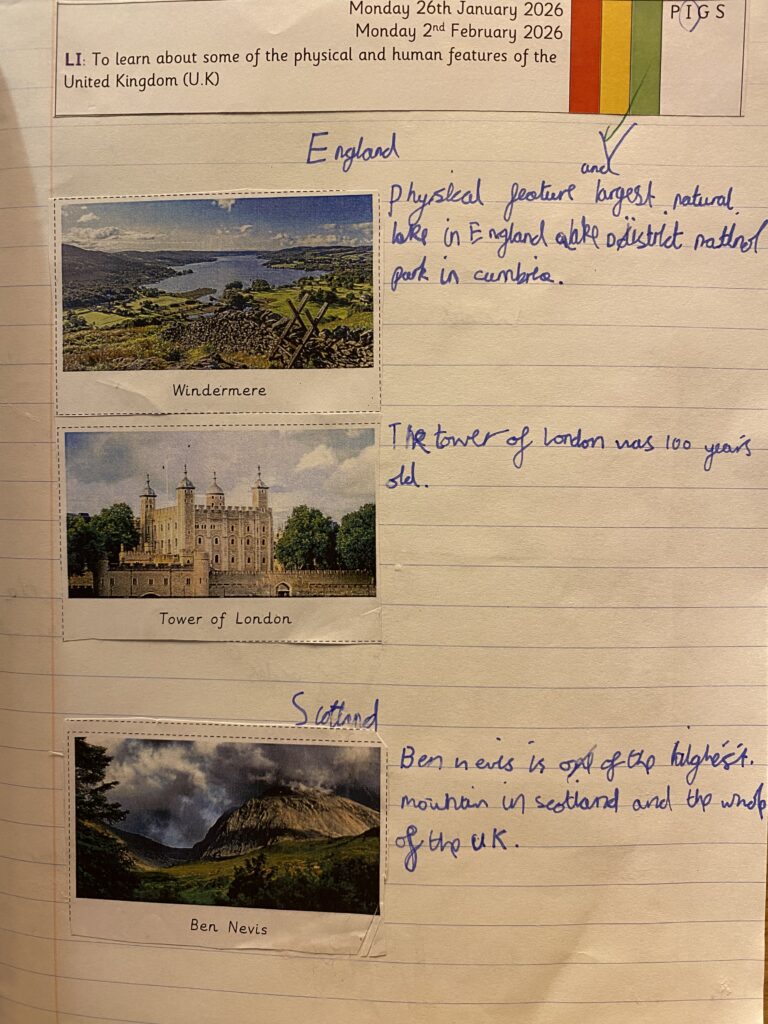 Monday 26th January 2026
Monday 2nd February 2026
PIGS
LI: To learn about some of the physical and human features of the
United Kingdom (U.K)
England
and
Physical feature largest natural
lake in England District
park in cumbria.
Windermere
The tower of London was 100 years
old.
Tower of London
Scotland
Ben nevis is one of the highest
mountain in scotland and the whole
of the UK.
Ben Nevis